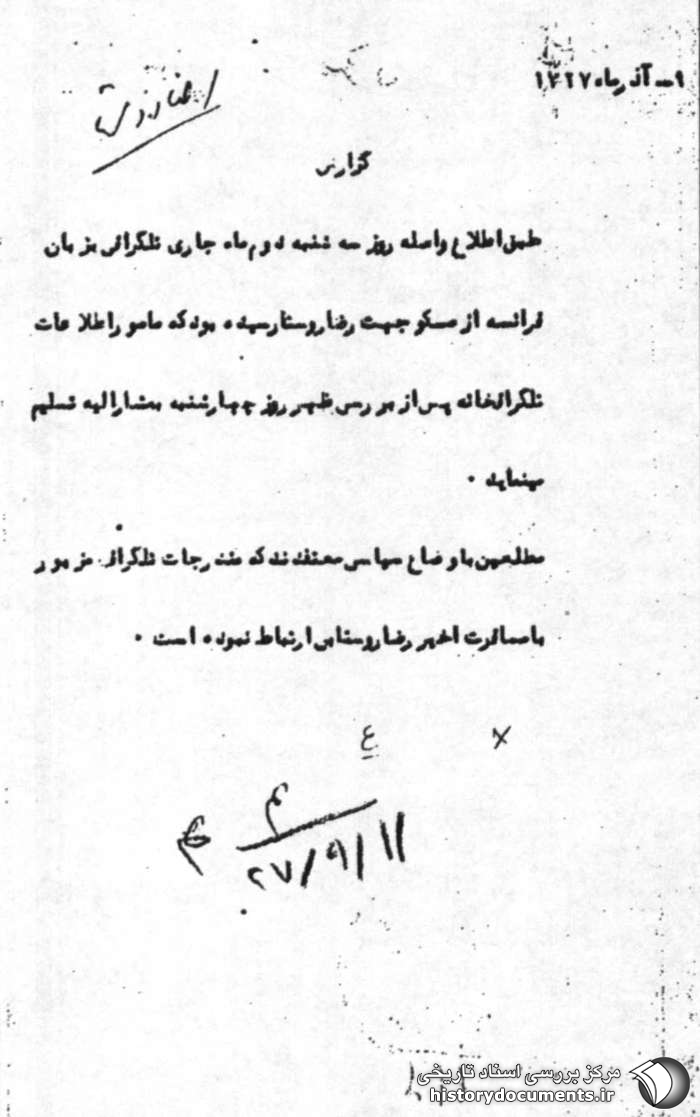 ۹ـ آذرماه ۱۳۲۷
گزارش
طبق اطلاع واصله روز سه شنبه دوم ماه جاری تلگرافی بزبان
فرانسه از مسکو جهت رضا روستا رسیده بود که مامور اطلاعات
تلگرافخانه پس از بررسی ظهر روز چهارشنبه بمشارالیه تسلیم
مینماید ۰
مطلعین باوضاع سیاسی معتقدند که مندرجات تلگراف مزبور
با مسافرت اخیر رضا روستا بی ارتباط نبوده است ۰
ع
×
م
۲۷/۹/۱۱
مرکز بررسی اسناد تاریخی
historydocuments.ir